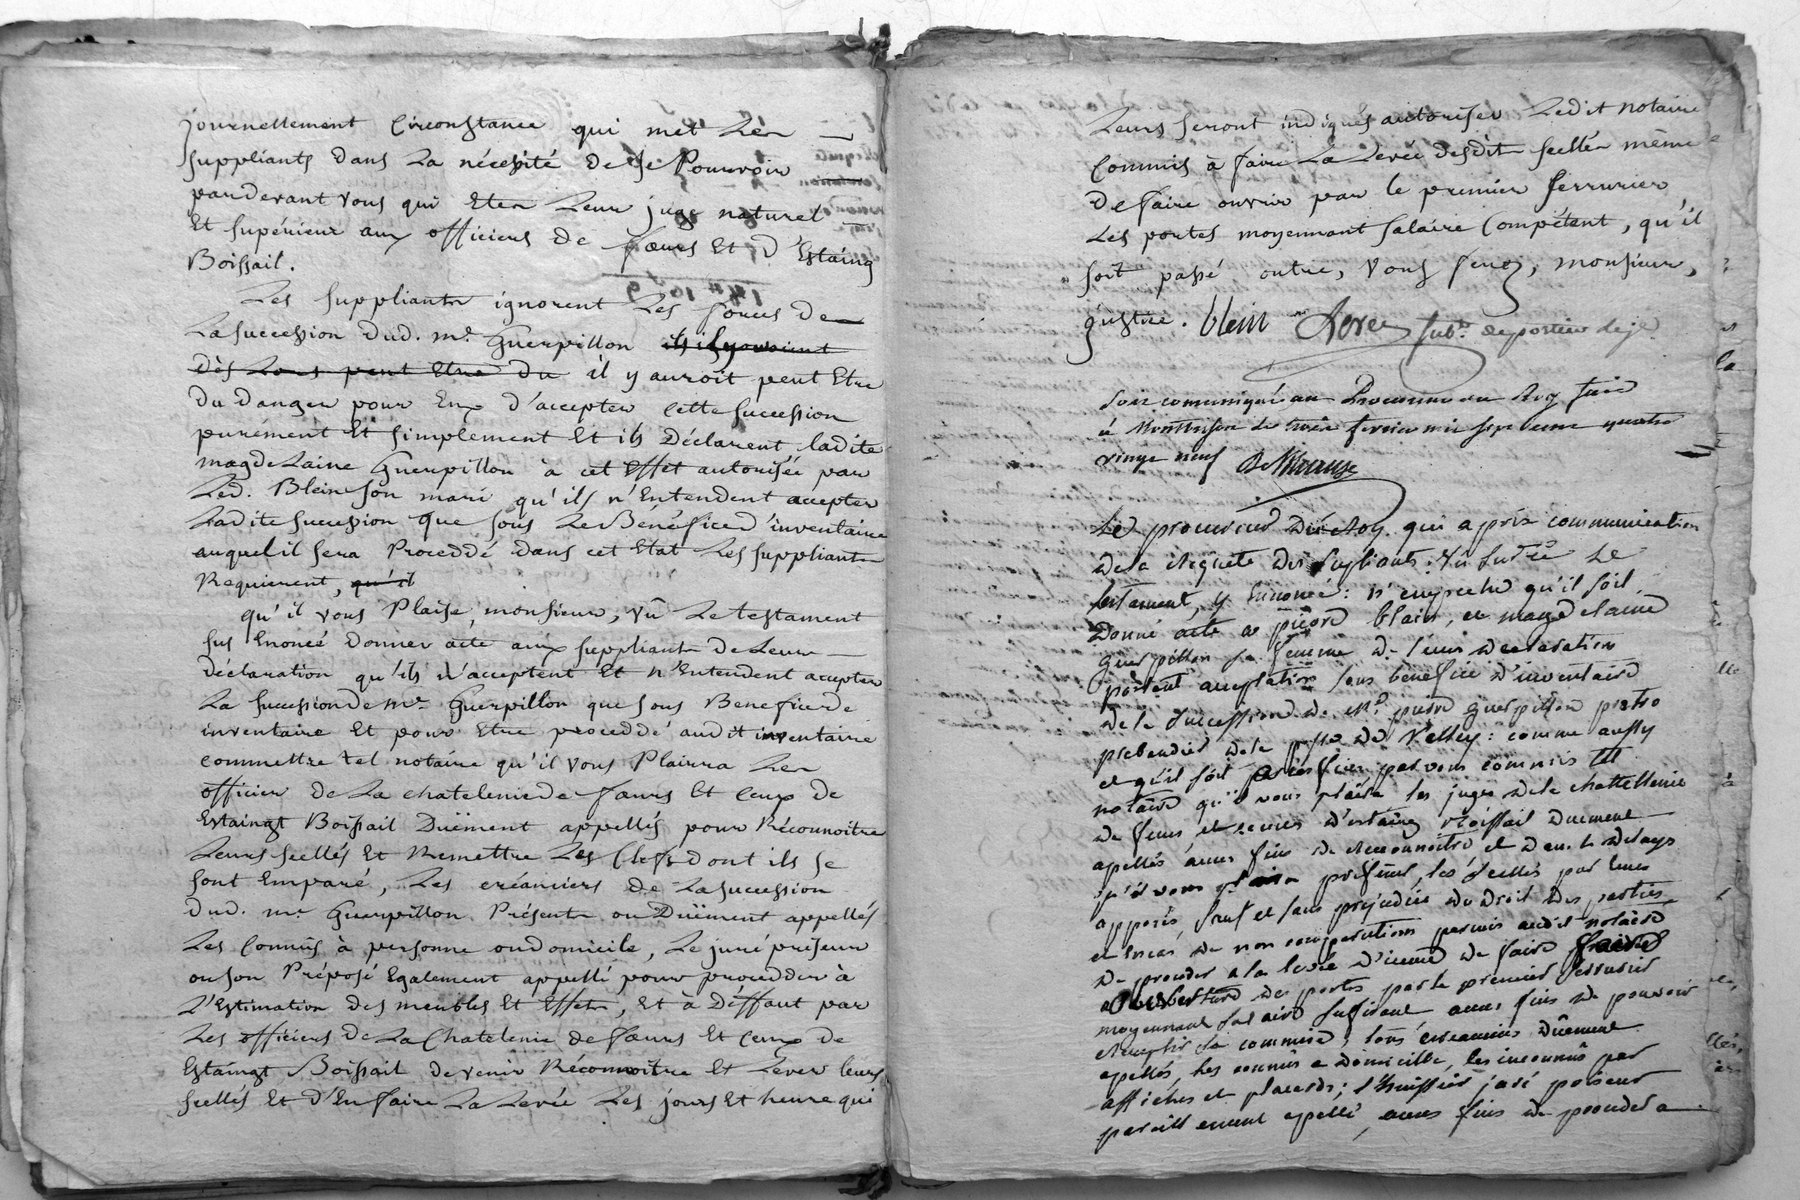 journellement Circonstance qui met Les
suppliants dans La nécessité de se Pourvoir
pardevant vous qui Etes Leur juge naturel
Et supérieur aux officiers de fœurs Et d'Estaing
Boissail.
Les suppliants ignorent Les forces de
La succession dud. mr. Guerpillon
dès Lors peut Etre du il y auroit peut Etre
du danger pour Eux d'accepter cette succession
purement Et simplement Et ils Déclarent, ladite
magdelaine Guerpillon à cet Effet autorisée par
Led. Blein son mari qu'ils n'Entendent accepter
Ladite succession que sous Le Bénéfice d'inventaire
auquel il sera Proceddé dans cet Etat Les suppliants
Requierent, qu'il
qu'il vous Plaise, monsieur, vû Le testament
sus Enoncé donner acte aux suppliants de Leur
déclaration qu'ils n'acceptent Et n'Entendent accepter
La succession de mr. Guerpillon que sous Benefice de
inventaire Et pour Etre proceddé audit inventaire
commettre tel notaire qu'il vous Plairra Les
officiers de La chatelenie de fœurs Et Ceux de
Estaingt Boissail Duëment appellés pour Réconnoitre
Leurs scellés Et Remettre Les Clefs dont ils se
sont Emparé, Les créanciers de La succession
dud. mr. Guerpillon Présents ou Duëment appellés
Les Connûs à personne ou domicile, Le juré priseur
ou son Préposé Egalement appellé pour procedder à
L'Estimation des meubles Et Effets, Et à Déffaut par
Les officiers de La Chatelenie de fœurs Et Ceux de
Estaingt Boissail de venir Réconnoitre Et Lever leurs
scellés Et d'En faire La Levée Les jours Et heure qui
Leurs seront indiqués autoriser Ledit notaire
Commis à faire La Levée desdits scellés même
de faire ouvrir par le premier serrurier
Les portes moyennant salaire Compétent, qu'il
soit passé outre, vous ferez, monsieur,
justice. blein
soit comuniqué au Procureur du Roy fait
à Montbrison le treize fevrier mil sept cent quatre
vingt neuf
Le procureur du Roy qui a pris communication
de la Requete des supliants. Vu sur icelle Le
testament y enoncé: n'empeche qu'il soit
donné acte a pierre blain, et magdelaine
guerpillon sa femme de leurs declaration
portant acceptation sous benefice d'inventaire
de la succession de mr. pierre guerpillon pretre
prebendier de la de : comme aussy
et qu'il soit par vous commis tel
notaire qu'il vous plaira les juges de la chattellenie
de feurs et d'estaing Boissail duement
apellés aux fins de reconnoitre et dans le delays
qu'il vous plaira prefiner, les scellés par eux
apposés, sauf et sans prejudice du droit des parties
et en cas de non comparution permis audit notaire
de proceder a la levée d'iceux de faire faire
ouverture des portes par le premier serrurier
moyennant salaire sufisant aux fins de pouvoir
remplir sa commise; tous creanciers duement
apellés, les connus a domicille, les inconnus par
affiches et placards; l'huissier juré priseur
pareillement apellé, aux fins de proceder a